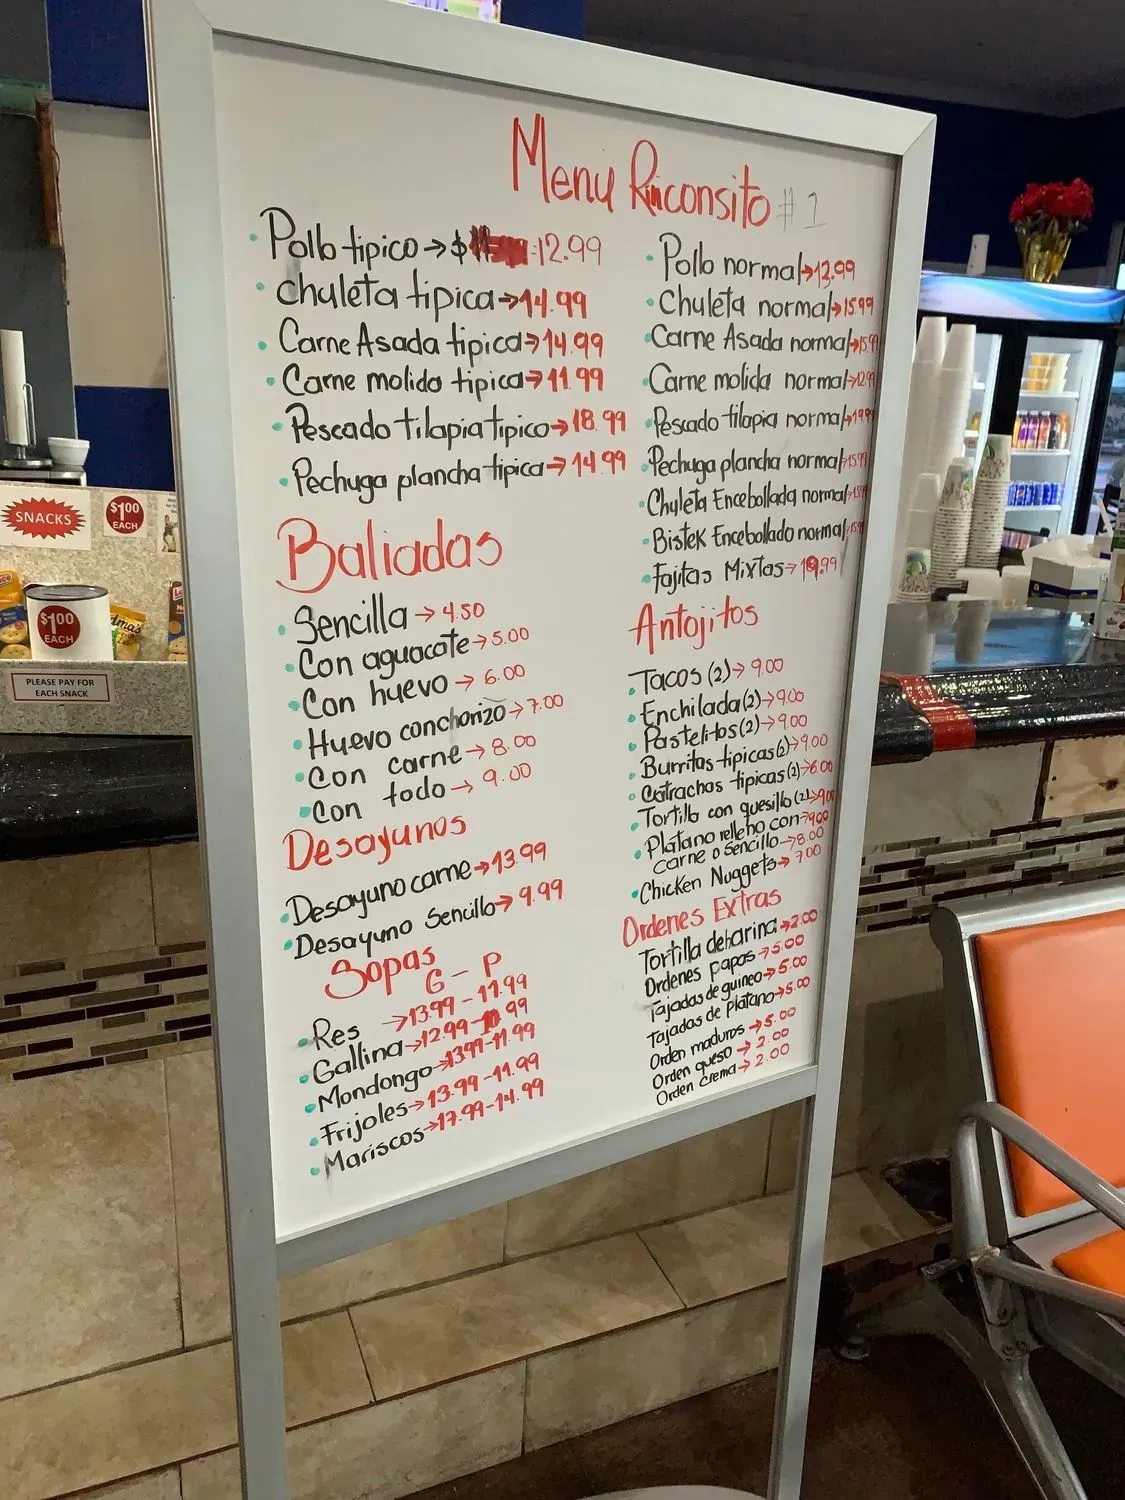 Menu Rinconsito # 1
Pollo tipico → $ 12.99
chuleta tipica → 14.99
Carne Asada tipica → 14.99
Carne molida tipica → 11.99
Pescado tilapia tipico → 18.99
Pechuga plancha tipica → 14.99
Baliadas
Sencilla → 4.50
Con aguacate → 5.00
Con huevo → 6.00
Huevo con chorizo → 7.00
Con carne → 8.00
Con todo → 9.00
Desayunos
Desayuno carne → 13.99
Desayuno Sencillo → 9.99
Sopas
G - P
Res → 13.99 - 11.99
Gallina → 12.99 - 10.99
Mondongo → 13.99 - 11.99
Frijoles → 13.99 - 11.99
Mariscos → 17.99 - 14.99
Pollo normal → 13.99
Chuleta normal → 15.99
Carne Asada normal → 15.99
Carne molida normal → 12.99
Pescado tilapia normal → 19.99
Pechuga plancha normal → 15.99
Chuleta Encebollada normal
Bistek Encebollado normal
Fajitas Mixtas → 19.99
Antojitos
Tacos (2) → 9.00
Enchilada (2) → 9.00
Pastelitos (2) → 9.00
Burritas tipicas (2) → 9.00
Catrachas tipicas (2) → 6.00
Tortilla con quesillo (2) → 9.00
Platano relleno con → 9.00
carne o sencillo → 8.00
Chicken Nuggets → 7.00
Ordenes Extras
Tortilla de harina → 2.00
Ordenes papas → 5.00
Tajadas de guineo → 5.00
Tajadas de Platano → 5.00
Orden maduros → 5.00
Orden queso → 2.00
Orden crema → 2.00
SNACKS
$1.00
EACH
$1.00
EACH
PLEASE PAY FOR
EACH SNACK